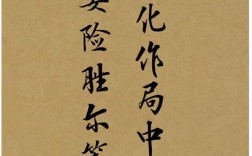 化作局中
险胜尔